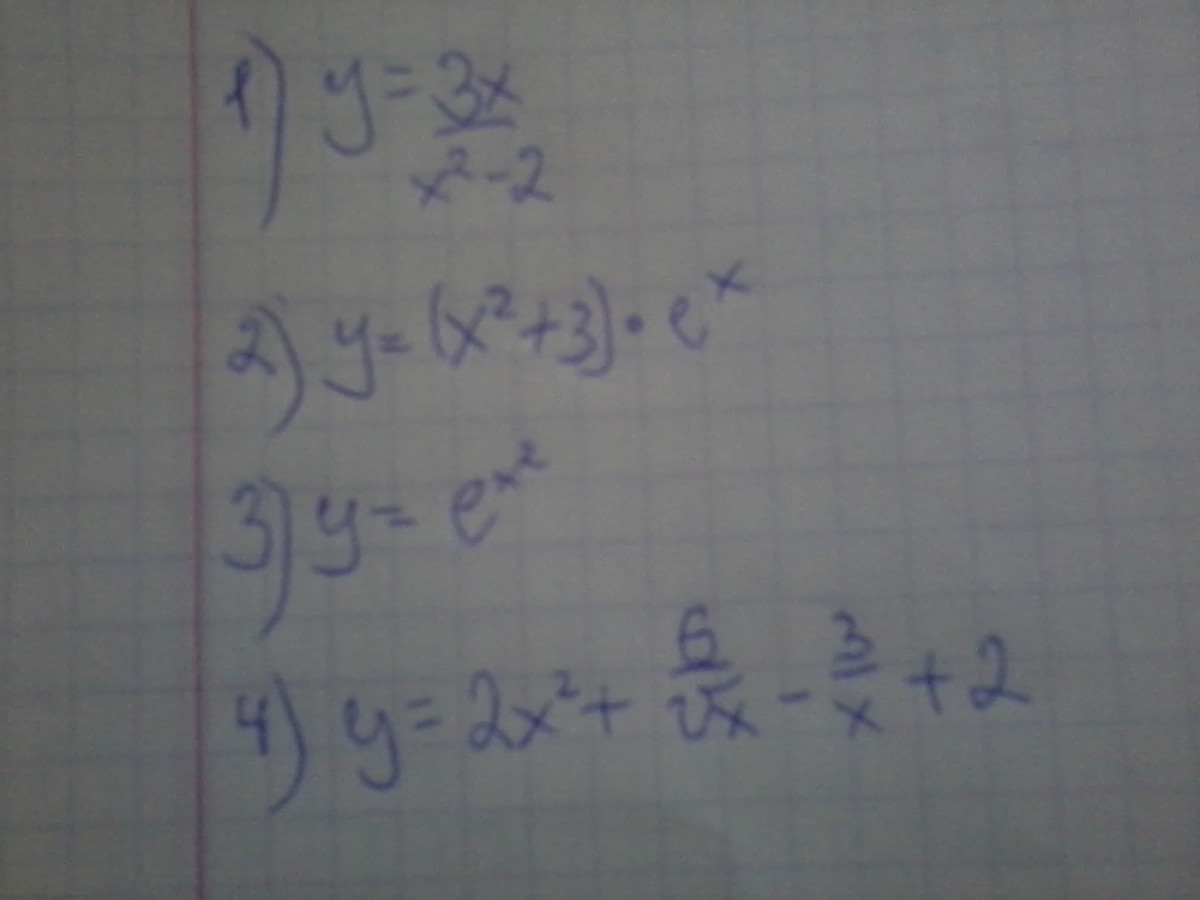 1) y = 3x / (x² - 2)
2) y = (x² + 3) · eˣ
3) y = e^x²
4) y = 2x² + 6/√x - 3/x + 2